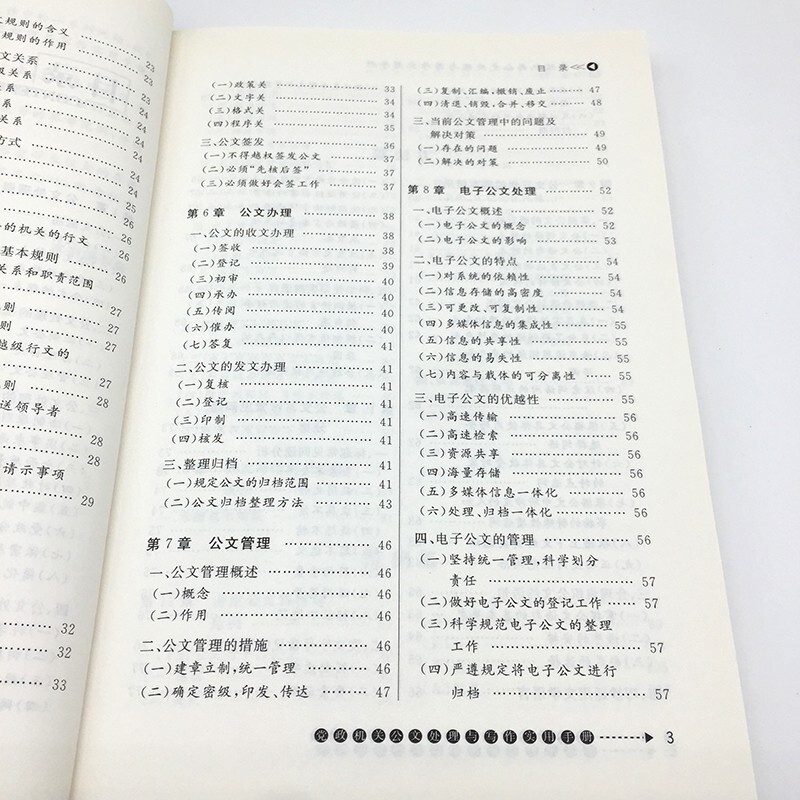 规则的含义 23
规则的作用 23
文关系 23
级关系 24
关系 24
关系 24
关系 24
方式 24
24
24
25
26
的机关的行文 26
基本规则 26
关系和职责范围
27
规则 27
则 27
越级行文的
27
则 28
送领导者
28
28
请示事项
29
32
32
33
目 录
(一)政策关 33
(二)文字关 34
(三)格式关 34
(四)程序关 35
三、公文签发 36
(一)不得越权签发公文 37
(二)必须“先核后签” 37
(三)必须做好会签工作 37
第6章 公文办理 38
一、公文的收文办理 38
(一)签收 38
(二)登记 39
(三)初审 40
(四)承办 40
(五)传阅 40
(六)催办 40
(七)答复 41
二、公文的发文办理 41
(一)复核 41
(二)登记 41
(三)印制 41
(四)核发 41
三、整理归档 41
(一)规定公文的归档范围 41
(二)公文归档整理方法 43
第7章 公文管理 46
一、公文管理概述 46
(一)概念 46
(二)作用 46
二、公文管理的措施 46
(一)建章立制,统一管理 46
(二)确定密级,印发、传达 47
(三)复制、汇编,撤销、废止 47
(四)清退、销毁,合并、移交 48
三、当前公文管理中的问题及
解决对策 49
(一)存在的问题 49
(二)解决的对策 50
第8章 电子公文处理 52
一、电子公文概述 52
(一)电子公文的概念 52
(二)电子公文的影响 53
二、电子公文的特点 54
(一)对系统的依赖性 54
(二)信息存储的高密度 54
(三)可更改、可复制性 54
(四)多媒体信息的集成性 55
(五)信息的共享性 55
(六)信息的易失性 55
(七)内容与载体的可分离性 55
三、电子公文的优越性 55
(一)高速传输 56
(二)高速检索 56
(三)资源共享 56
(四)海量存储 56
(五)多媒体信息一体化 56
(六)处理、归档一体化 56
四、电子公文的管理 56
(一)坚持统一管理,科学划分
责任 57
(二)做好电子公文的登记工作 57
(三)科学规范电子公文的整理
工作 57
(四)严遵规定将电子公文进行
归档 57
党政机关公文处理与写作实用手册 3